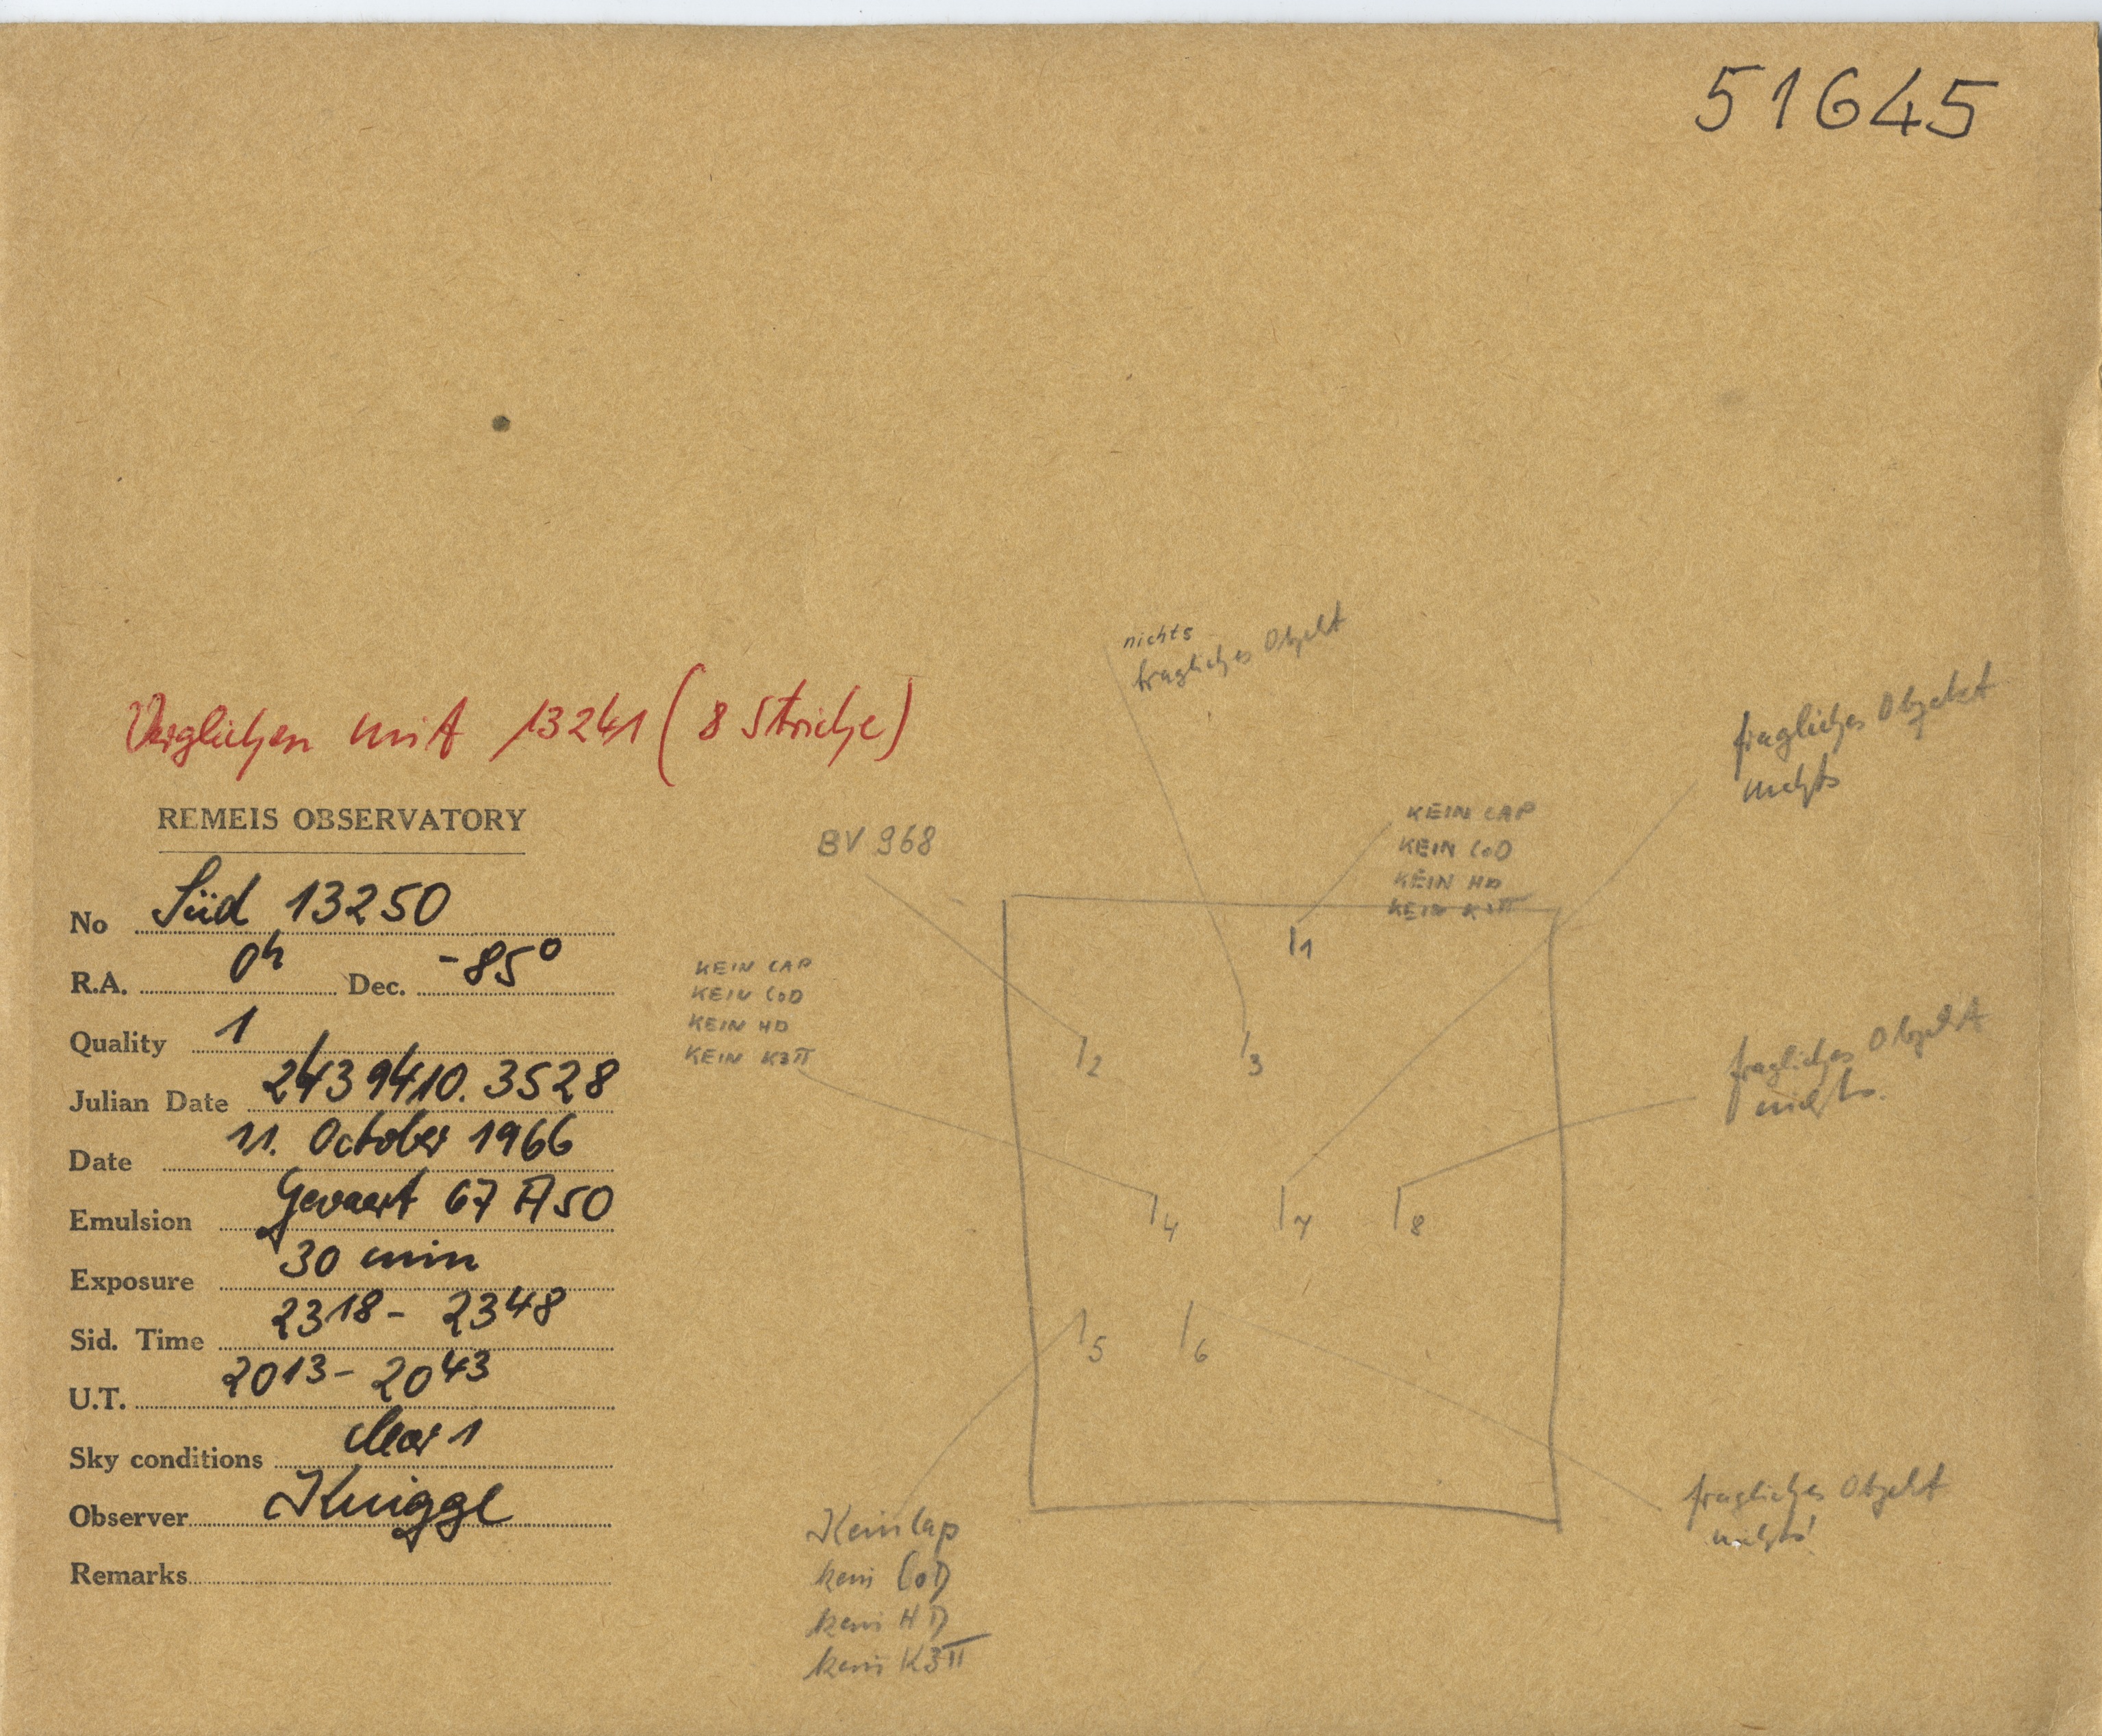 51645
nichts
fragliches Objekt
fragliches Objekt
nichts
Verglichen mit 13241 (8 Striche)
REMEIS OBSERVATORY
No Süd 13250
R.A. 0h Dec. -85°
Quality 1
Julian Date 2439410.3528
Date 11. October 1966
Emulsion Gevaert 67 A50
Exposure 30 min
Sid. Time 23 18 - 23 48
U.T. 20 13 - 20 43
Sky conditions clear 1
Observer Knigge
Remarks
BV 968
KEIN CAP
KEIN CoD
KEIN HD
KEIN K3П
KEIN CAP
KEIN CoD
KEIN HD
KEIN K3П
1
2
3
4
7
8
5
6
fragliches Objekt
nichts.
fragliches Objekt
nichts!
Kein Cap
kein CoD
kein HD
kein K3П